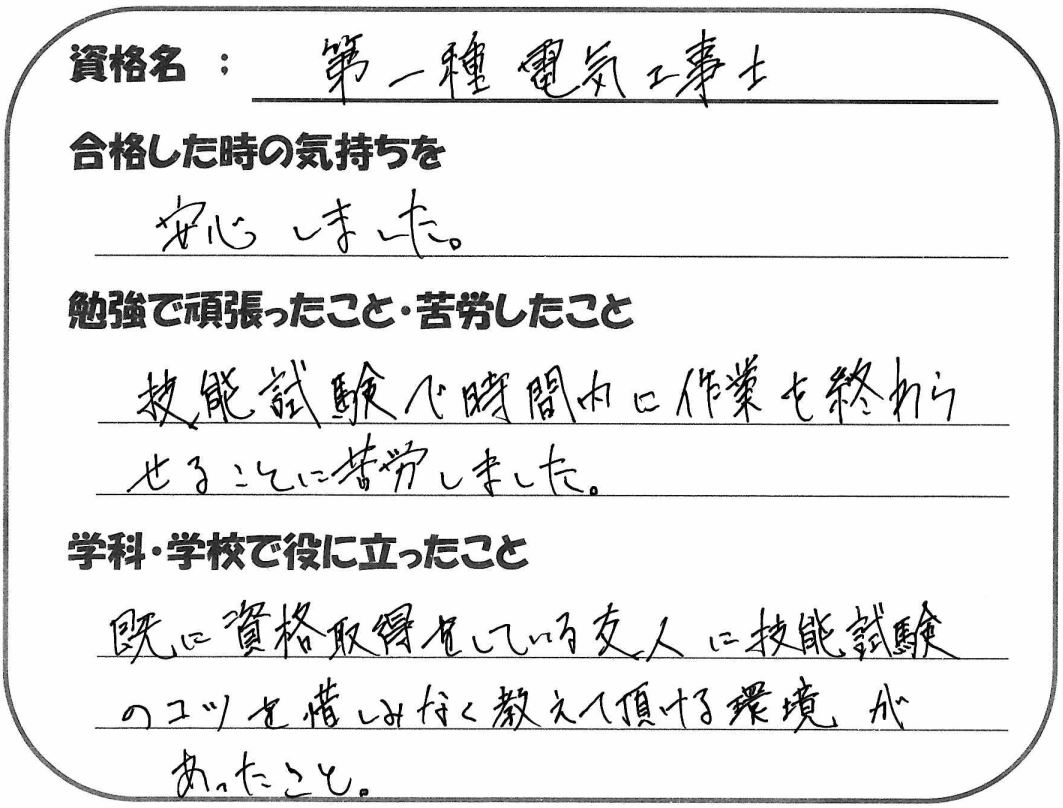 資格名 : 第一種電気工事士
合格した時の気持ちを
安心しました。
勉強で頑張ったこと・苦労したこと
技能試験で時間内に作業を終わら
せることに苦労しました。
学科・学校で役に立ったこと
既に資格取得をしている友人に技能試験
のコツを惜しみなく教えて頂ける環境が
あったこと。